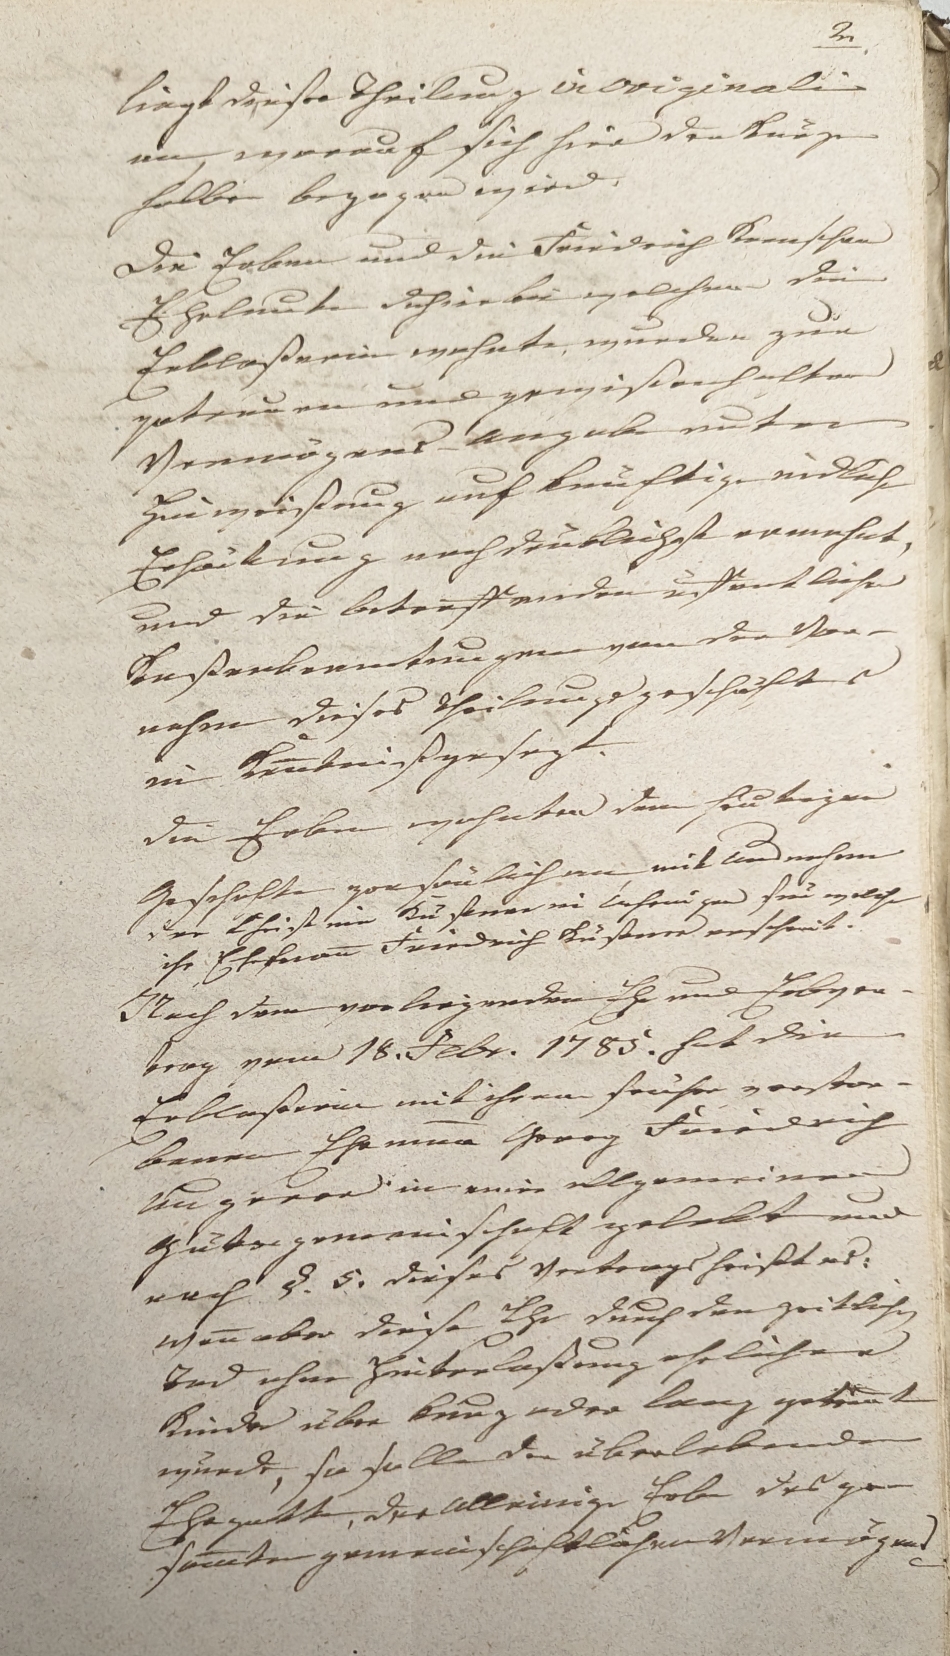 2.
liegt diese Theilung in originali
an, worauf sich hier der Kürze
halber bezogen wird.
Die Erben und die Friedrich
Eheleute dahier bei welchen die
Erblaßerin wohnte, wurden zur
getreuen und gewissenhaften
Vermögens-Angabe unter
Hinweisung auf künftige eidliche
Erhärtung nachdrücklichst ermahnt,
und die betreffenden öffentlichen
von der Vor-
nahm dieses Theilungsgeschäfts
in Kentniß gesezt.
Die Erben wohnten dem heutigen
Geschäfte persönlich an, mit Ausnahme
der Christine Küßner in für welche
ihr Ehemañ Friedrich Küßner erscheint.
Nach dem vorliegenden Ehe und Erbver-
trag vom 18. Febr. 1785. hat die
Erblaßerin mit ihrem früher verstor-
benen Ehemañ Georg Friedrich
Ungerer in einer allgemeinen
Gütergemeinschaft gelebt und
nach §. 5. dieses Vertrags heißt es:
Weñ aber diese Ehe durch den zeitlichen
Tod ohne Hinterlaßung ehelicher
Kinder über kurz oder lang getreñt
würde, so solle der überlebende
Ehegatte, der Alleinige Erbe des ge-
sam̄ten gemeinschaftlichen Vermögens